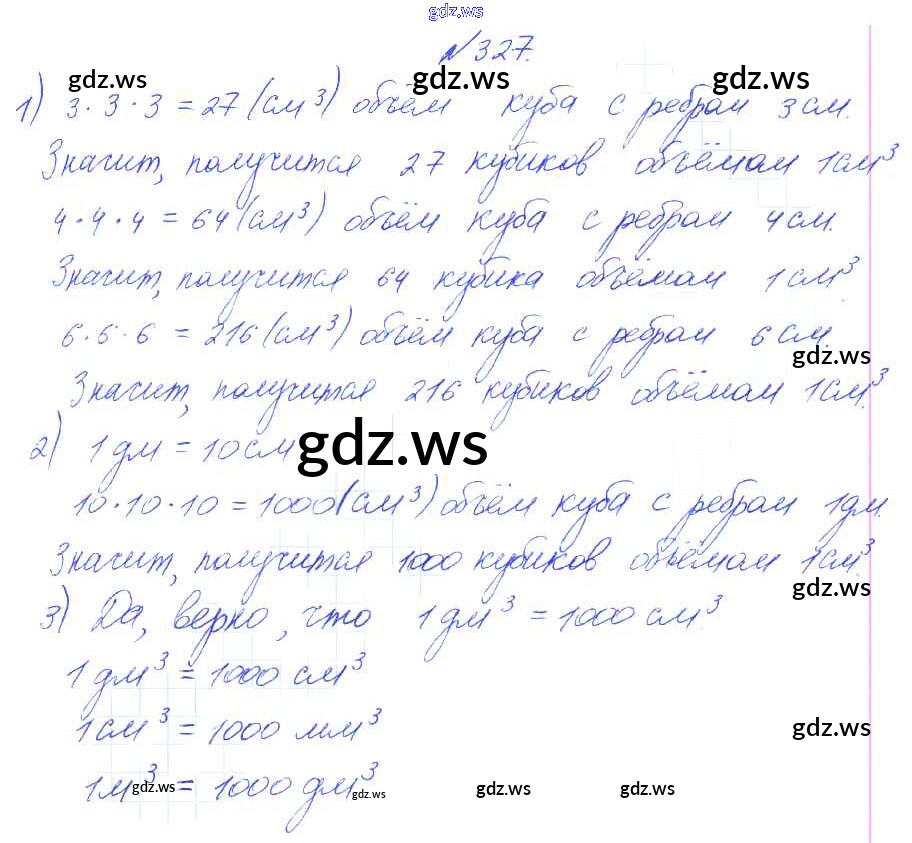 gdz.ws
№327.
gdz.ws gdz.ws gdz.ws
1) 3·3·3 = 27 (см³) объём куба с ребром 3 см.
Значит, получится 27 кубиков объёмом 1 см³
4·4·4 = 64 (см³) объём куба с ребром 4 см.
Значит, получится 64 кубика объёмом 1 см³
6·6·6 = 216 (см³) объём куба с ребром 6 см.
gdz.ws
Значит, получится 216 кубиков объёмом 1 см³.
2) 1 дм = 10 см
gdz.ws
10·10·10 = 1000 (см³) объём куба с ребром 1 дм.
Значит, получится 1000 кубиков объёмом 1 см³.
gdz.ws
3) Да, верно, что 1 дм³ = 1000 см³.
1 дм³ = 1000 см³
1 см³ = 1000 мм³
gdz.ws
1 м³ = 1000 дм³
gdz.ws gdz.ws gdz.ws gdz.ws